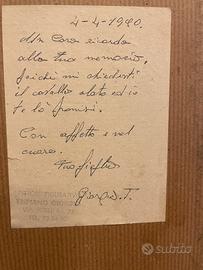 4-4-1980.
Alla Cara ricordo
alla tua memoria,
poiché mi chiedesti
il cavallo alato ed io
te lo promisi.
Con affetto e nel
cuore.
tuo figlio
Giorgio T.
subito